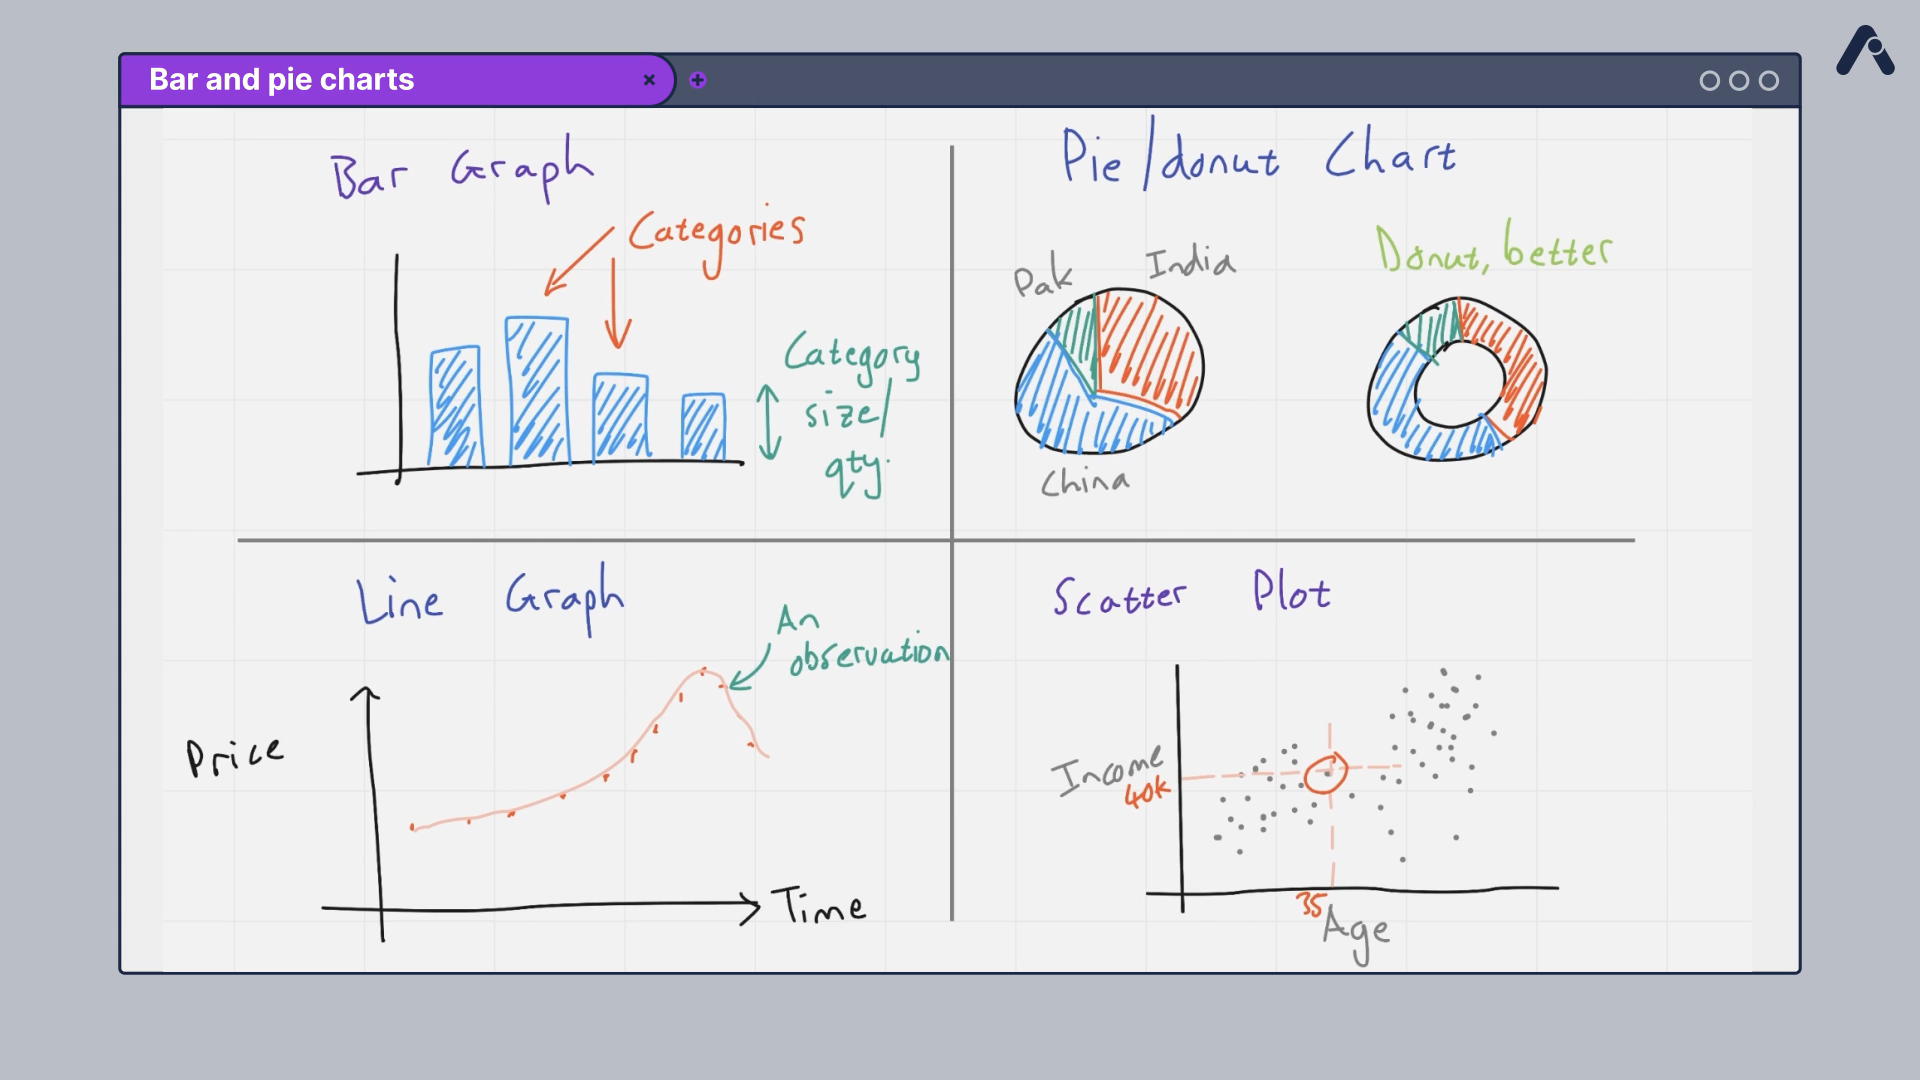 Bar and pie charts
Bar Graph
Categories
Category
size/
qty.
Pie/donut Chart
Pak
India
China
Donut, better
Line Graph
An
observation
Price
Time
Scatter Plot
Income
40k
35
Age